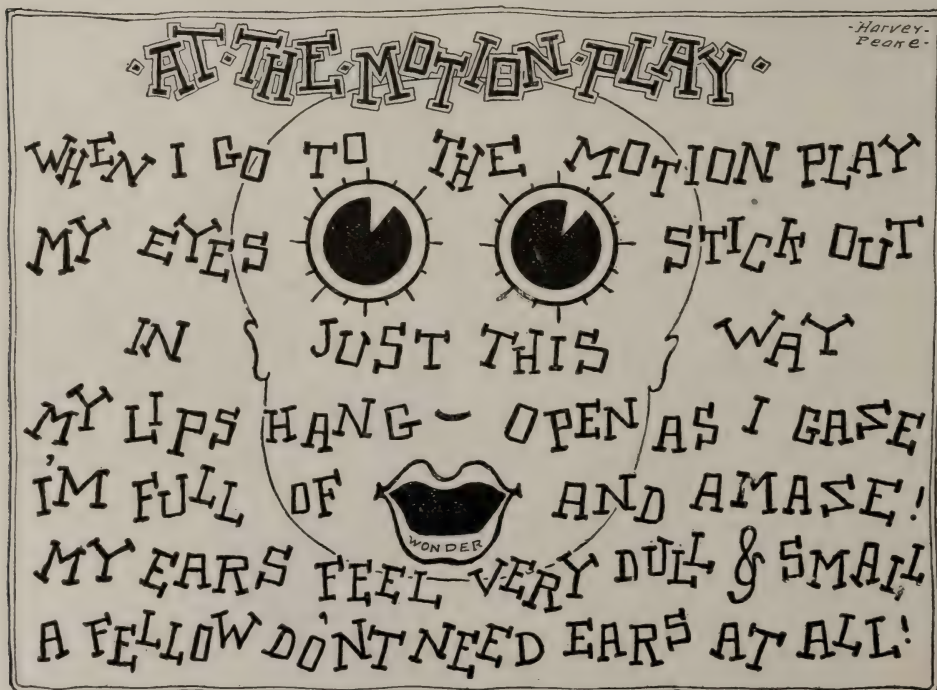 -Harvey-
Peake-
·AT·THE·MOTION·PLAY·
WHEN I GO TO THE MOTION PLAY
MY EYES STICK OUT
IN JUST THIS WAY
MY LIPS HANG – OPEN AS I GASE
I'M FULL OF WONDER AND AMASE!
MY EARS FEEL VERY DULL & SMALL
A FELLOW DO'NT NEED EARS AT ALL!